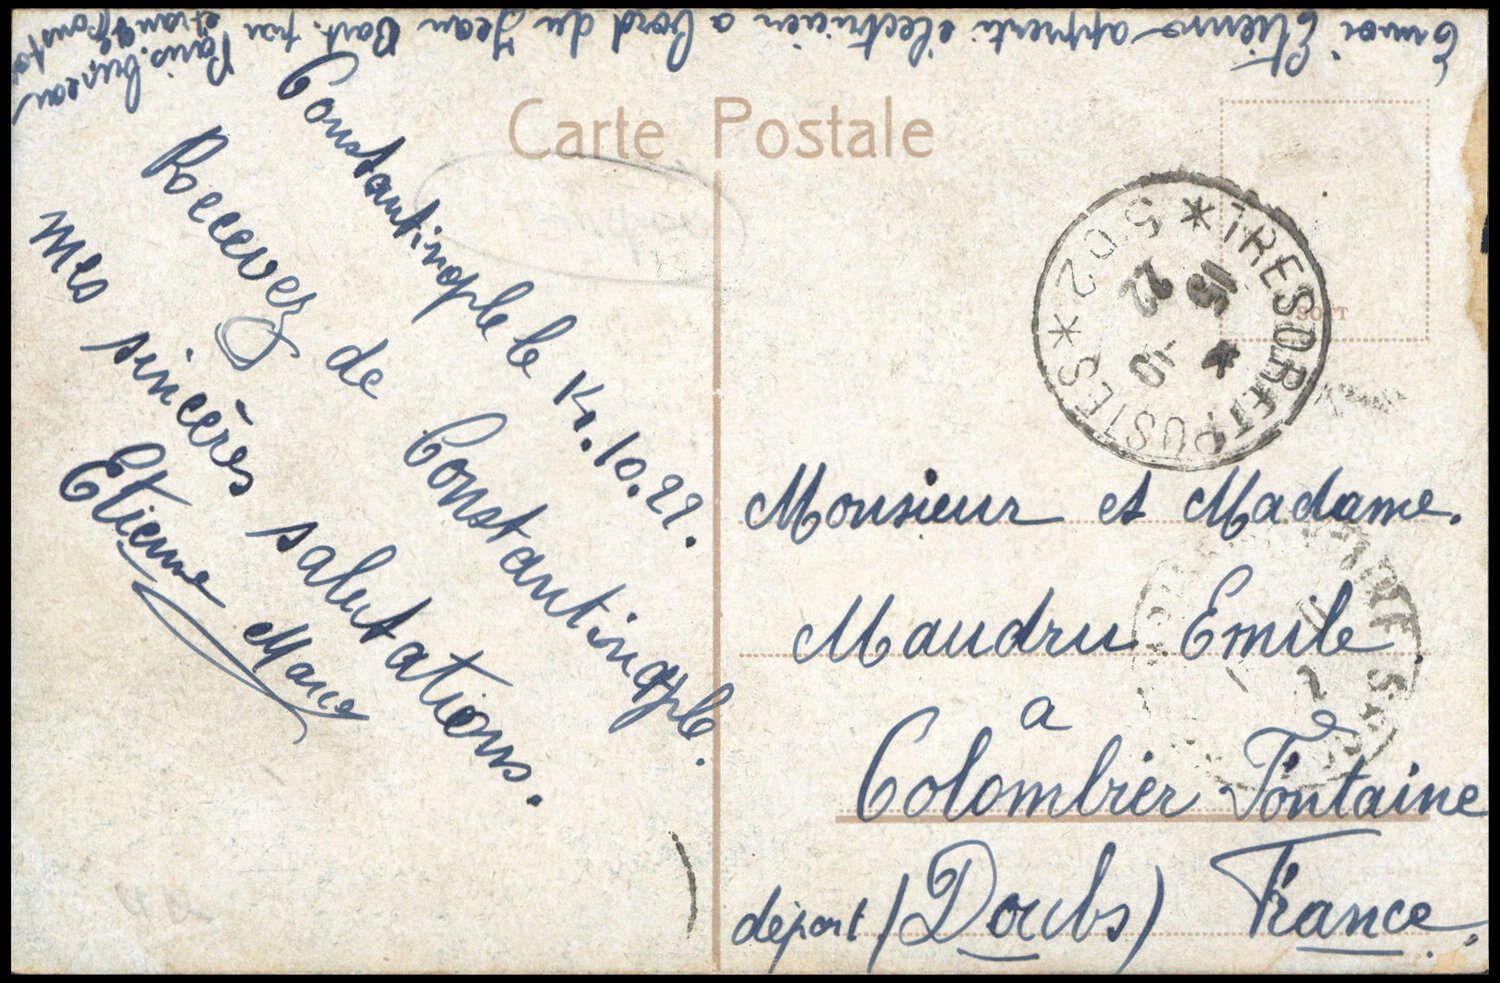 Envoi Etienne apprenti électricien a bord du Jean Bart. par
Paris. bureau
etranger
Carte Postale
Constantinople le 14.10.22.
Recevez de Constantinople.
mes sincères salutations.
Etienne
TRESOR ET POSTES * 502 *
15 -10 22
Monsieur et Madame.
Maudru Emile
a
Colombier Fontaine
départ (Doubs) France.